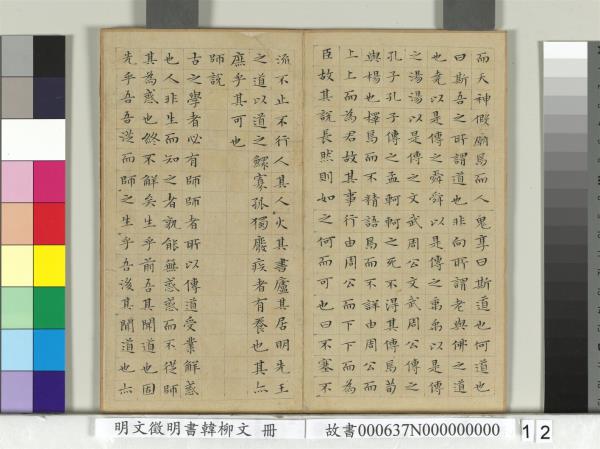 而天神假廟焉而人鬼享曰斯道也何道也
曰斯吾之所謂道也非向所謂老與佛之道
也堯以是傳之舜舜以是傳之禹禹以是傳
之湯湯以是傳之文武周公文武周公傳之
孔子孔子傳之孟軻軻之死不得其傳焉荀
與楊也擇焉而不精語焉而不詳由周公而
上上而為君故其事行由周公而下下而為
臣故其說長然則如之何而可也曰不塞不
流不止不行人其人火其書廬其居明先王
之道以道之鰥寡孤獨廢疾者有養也其亦
庶乎其可也
師說
古之學者必有師師者所以傳道受業解惑
也人非生而知之者孰能無惑惑而不從師
其為惑也終不解矣生乎前吾其聞道也固
先乎吾吾從而師之生乎吾後其聞道也亦
明文徵明書韓柳文 冊
故書000637N000000000
1 2